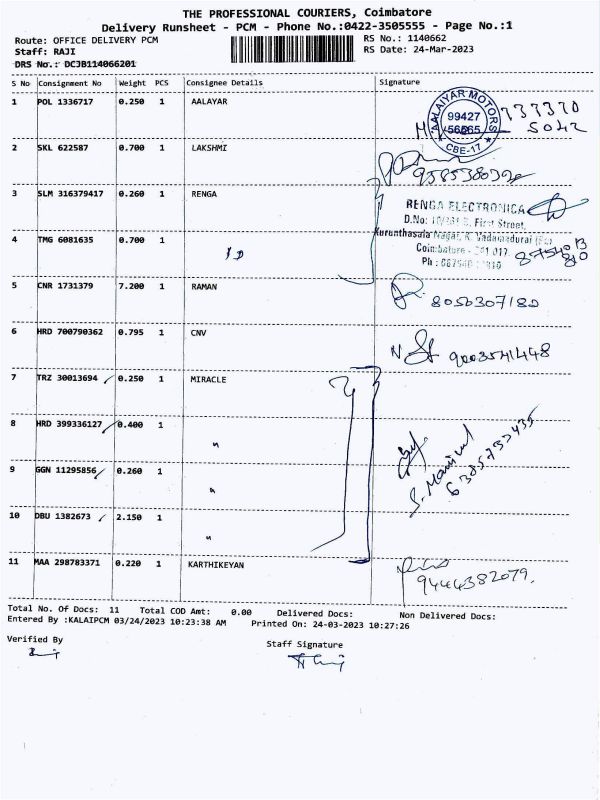 THE PROFESSIONAL COURIERS, Coimbatore
Delivery Runsheet - PCM - Phone No.:0422-3505555 - Page No.:1
Route: OFFICE DELIVERY PCM
RS No.: 1140662
Staff: RAJI
RS Date: 24-Mar-2023
DRS No.: DCJB114066201
S No Consignment No Weight PCS Consignee Details Signature
1 POL 1336717 0.250 1 AALAYAR
AALAIYAR MOTORS
99427
56665
CBE-17
737370
5042
2 SKL 622587 0.700 1 LAKSHMI
3 SLM 316379417 0.260 1 RENGA
RENGA ELECTRONICA
First Street,
Kurunthasala Nagar, K. Vadamadurai
4 TMG 6081635 0.700 1
Coimbatore - 641 017.
5 CNR 1731379 7.200 1 RAMAN
8056307180
6 HRD 700790362 0.795 1 CNV
9003541448
7 TRZ 30013694 0.250 1 MIRACLE
8 HRD 399336127 0.400 1 "
9 GGN 11295856 0.260 1 "
6385737435
10 DBU 1382673 2.150 1 "
11 MAA 298783371 0.220 1 KARTHIKEYAN
9444382079.
Total No. Of Docs: 11 Total COD Amt: 0.00 Delivered Docs: Non Delivered Docs:
Entered By :KALAIPCM 03/24/2023 10:23:38 AM Printed On: 24-03-2023 10:27:26
Verified By
Staff Signature